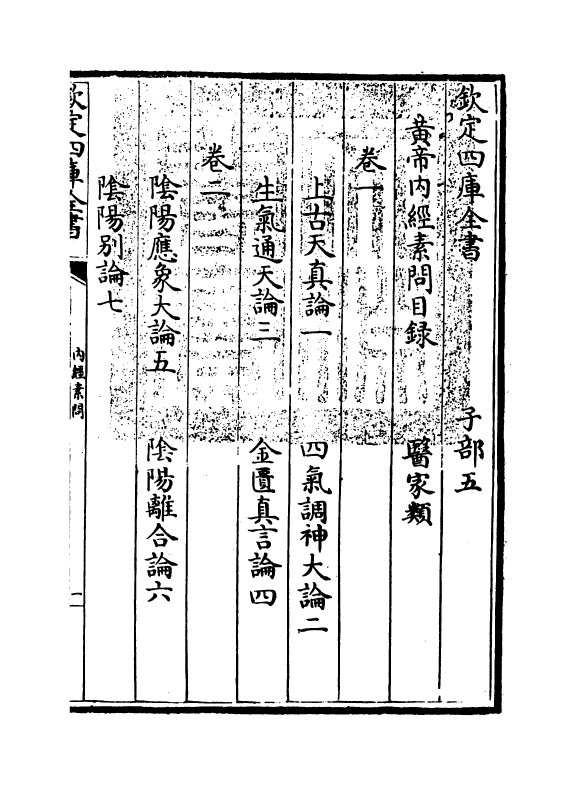 欽定四庫全書　子部五
黄帝内經素問目録　醫家類
卷一
上古天真論一　四氣調神大論二
生氣通天論三　金匱真言論四
卷二
陰陽應象大論五　陰陽離合論六
陰陽别論七
欽定四庫全書　内經素問